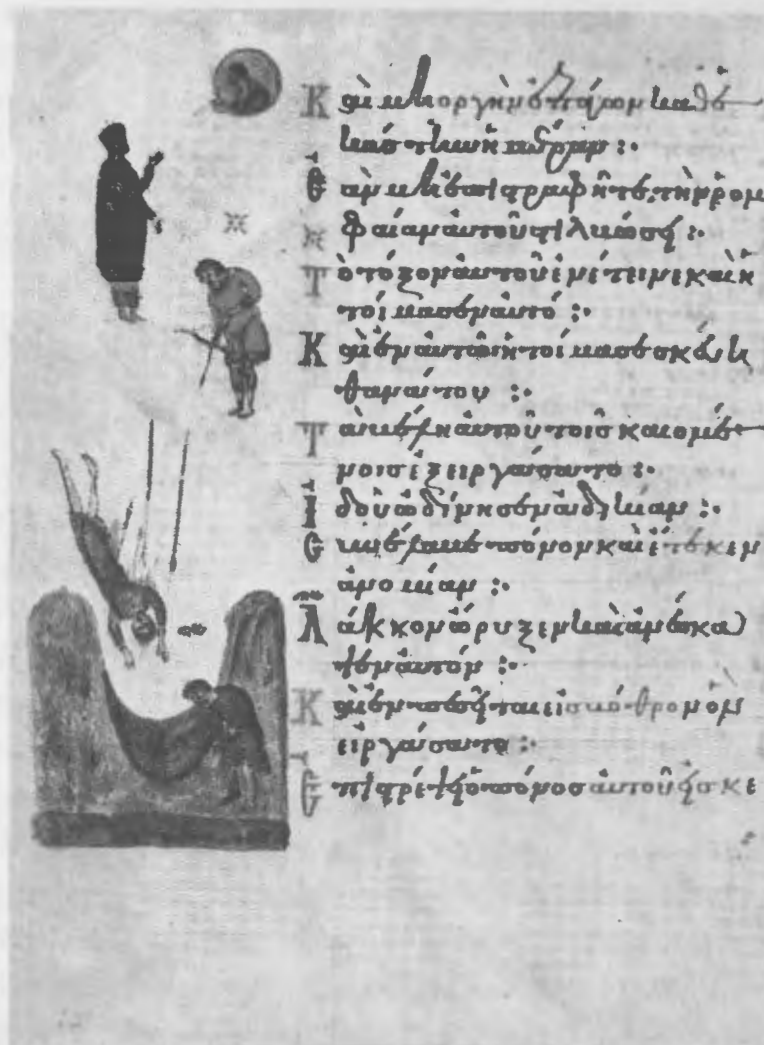 Καὶ μὴ ὀργὴν ἐπάγων καθ' ἑ
κάστην ἡμέραν :·
Ἐὰν μὴ ἐπιστραφῆτε, τὴν ῥομ
φαίαν αὐτοῦ στιλβώσει :·
Τὸ τόξον αὐτοῦ ἐνέτεινε καὶ ἡ
τοίμασεν αὐτό :·
Καὶ ἐν αὐτῷ ἡτοίμασε σκεύη
θανάτου :·
Τὰ βέλη αὐτοῦ τοῖς καιομέ
νοις ἐξειργάσατο :·
Ἰδοὺ ὠδίνησεν ἀδικίαν :·
Συνέλαβε πόνον καὶ ἔτεκεν
ἀνομίαν :·
Λάκκον ὤρυξεν καὶ ἀνέσκα
ψεν αὐτόν :·
Καὶ ἐνπεσεῖται εἰς βόθρον ὃν
εἰργάσατο :·
Ἐπιστρέψει ὁ πόνος αὐτοῦ εἰς κε